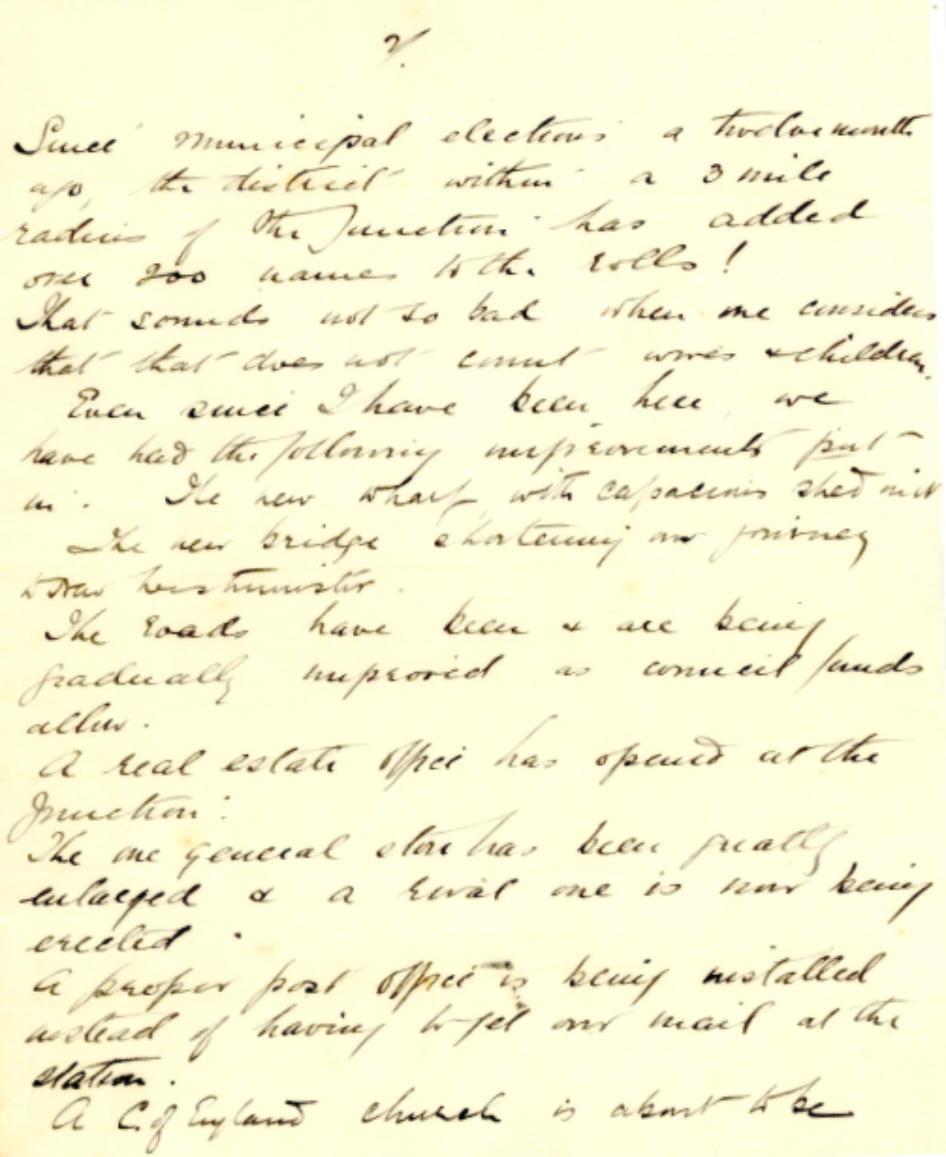 2/.
Since municipal elections a twelvemonth
ago, the district within a 3 mile
radius of the Junction has added
over 200 names to the rolls!
That sounds not so bad when one considers
that that does not count wives & children.
Even since I have been here, we
have had the following improvements put
in. The new wharf, with capacious shed on it
The new bridge shortening our journey
to New Westminster.
The roads have been & are being
gradually improved as council funds
allow.
A real estate office has opened at the
Junction.
The one general store has been greatly
enlarged & a rival one is now being
erected.
A proper post office is being installed
instead of having to get our mail at the
station.
A C. of England church is about to be